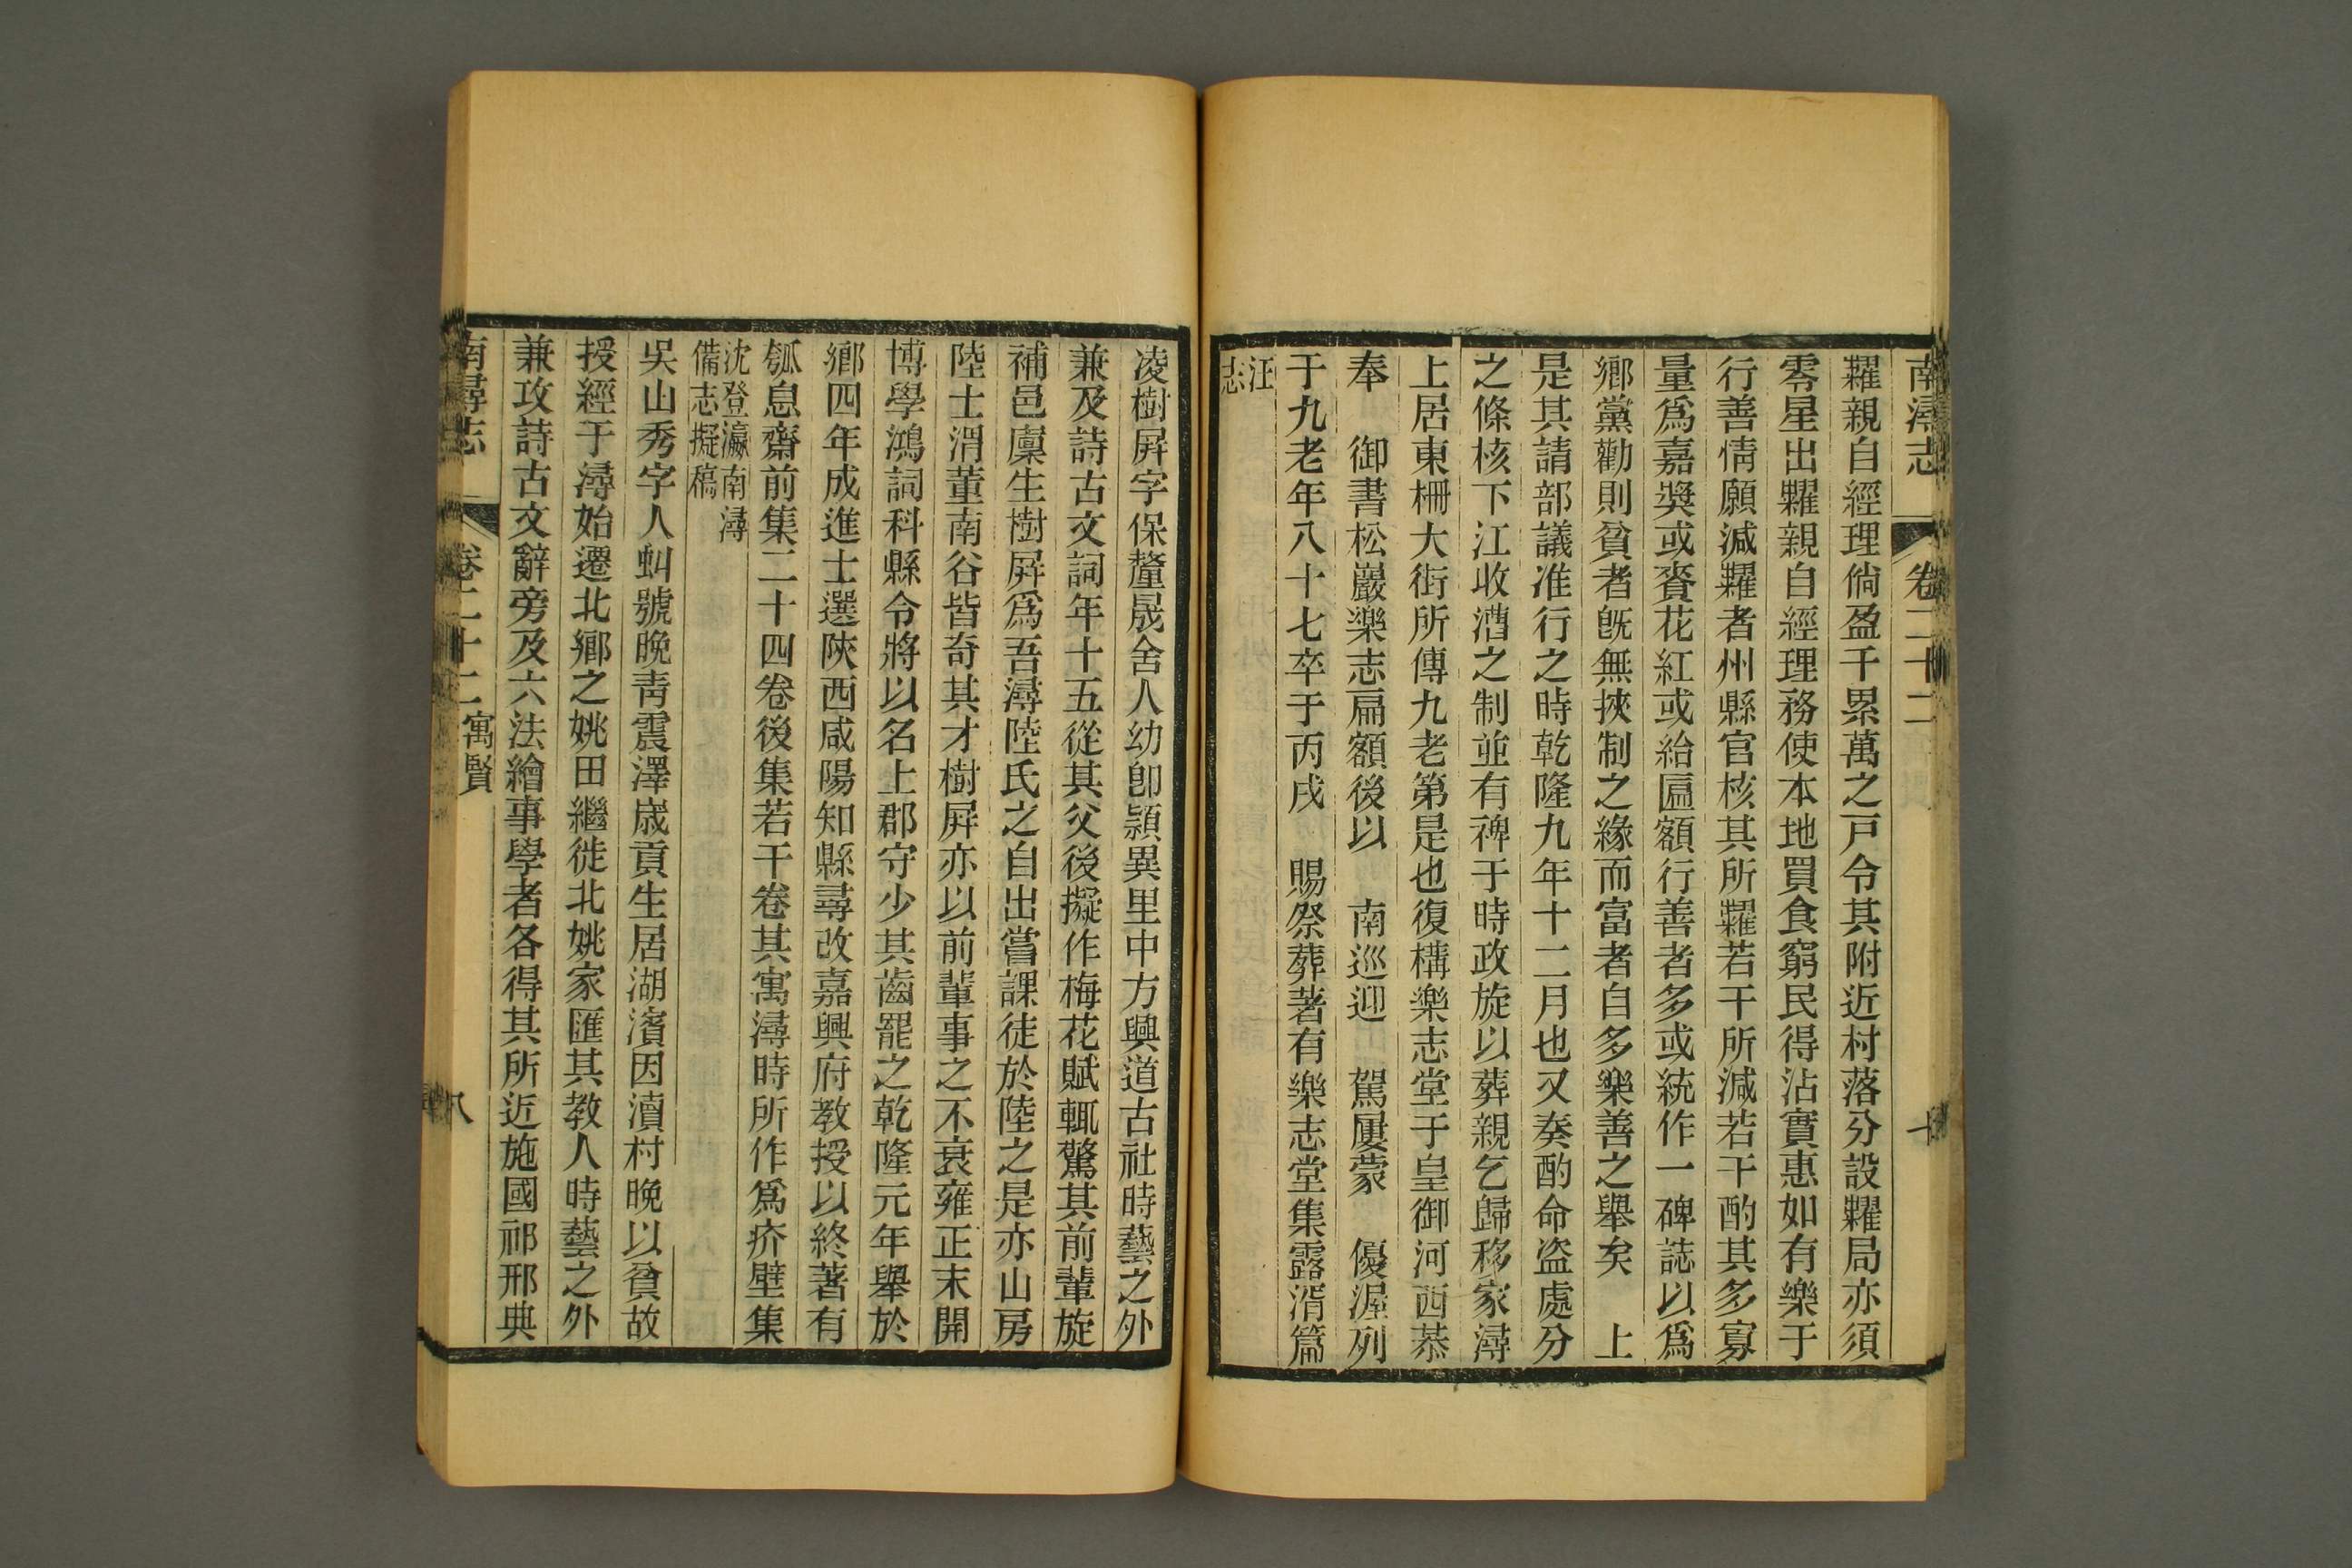 南潯志 卷二十二
糶親自經理倘盈千累萬之戸令其附近村落分設糶局亦須
零星出糶親自經理務使本地買食窮民得沾實惠如有樂于
行善情願減糶者州縣官核其所糶若干所減若干酌其多寡
量爲嘉奬或賚花紅或給匾額行善者多或統作一碑誌以爲
鄉黨勸則貧者旣無挾制之緣而富者自多樂善之舉矣 上
是其請部議准行之時乾隆九年十二月也又奏酌命盜處分
之條核下江收漕之制並有裨于時政旋以葬親乞歸移家潯
上居東柵大街所傳九老第是也復構樂志堂于皇御河西恭
奉 御書松巖樂志扁額後以 南巡迎 駕屢蒙 優渥列
于九老年八十七卒于丙戌 賜祭葬著有樂志堂集露湑篇
汪志
凌樹屛字保釐晟舍人幼卽頴異里中方興道古社時藝之外
兼及詩古文詞年十五從其父後擬作梅花賦輒驚其前輩旋
補邑廩生樹屛爲吾潯陸氏之自出嘗課徒於陸之是亦山房
陸士渭董南谷皆奇其才樹屛亦以前輩事之不衰雍正末開
博學鴻詞科縣令將以名上郡守少其齒罷之乾隆元年舉於
鄉四年成進士選陝西咸陽知縣尋改嘉興府教授以終著有
瓠息齋前集二十四卷後集若干卷其寓潯時所作爲疥壁集
沈登瀛南潯
備志擬稿
吳山秀字人虯號晚靑震澤歲貢生居湖濱因瀆村晚以貧故
授經于潯始遷北鄉之姚田繼徙北姚家匯其教人時藝之外
兼攻詩古文辭旁及六法繪事學者各得其所近施國祁邢典
南潯志 卷二十二 寓賢 八